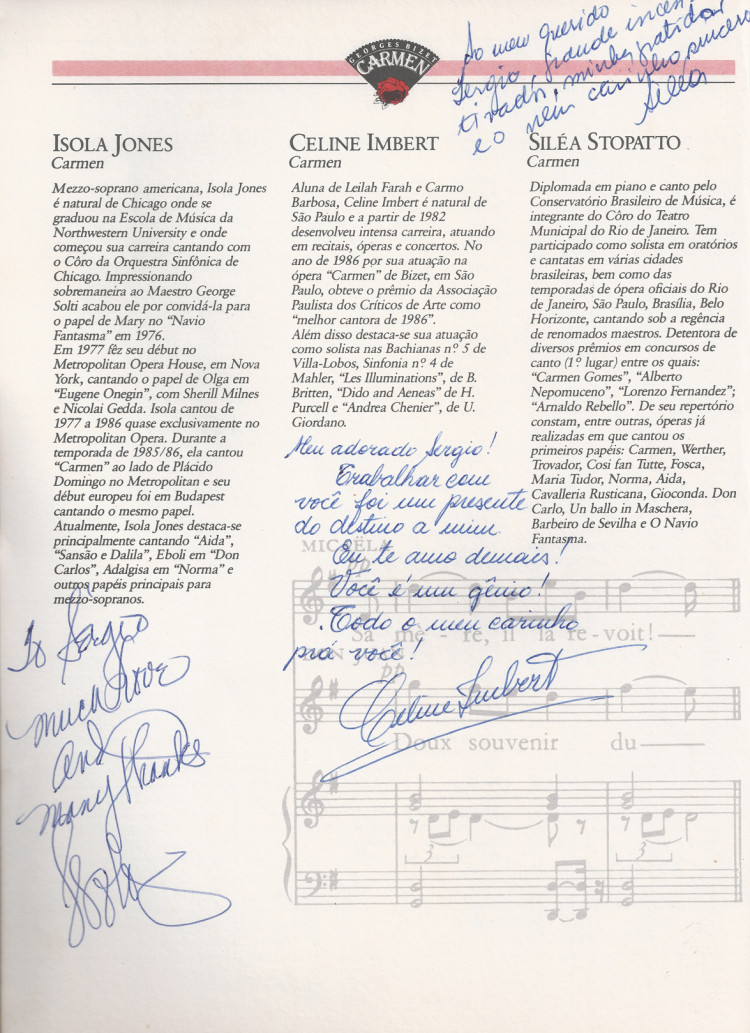 GEORGES BIZET
CARMEN
Ao meu querido
Sergio, grande incen
tivador, minha gratidão
e o meu carinho sincero
Siléa
ISOLA JONES
Carmen
Mezzo-soprano americana, Isola Jones
é natural de Chicago onde se
graduou na Escola de Música da
Northwestern University e onde
começou sua carreira cantando com
o Côro da Orquestra Sinfônica de
Chicago. Impressionando
sobremaneira ao Maestro George
Solti acabou ele por convidá-la para
o papel de Mary no “Navio
Fantasma” em 1976.
Em 1977 fêz seu début no
Metropolitan Opera House, em Nova
York, cantando o papel de Olga em
“Eugene Onegin”, com Sherill Milnes
e Nicolai Gedda. Isola cantou de
1977 a 1986 quase exclusivamente no
Metropolitan Opera. Durante a
temporada de 1985/86, ela cantou
“Carmen” ao lado de Plácido
Domingo no Metropolitan e seu
début europeu foi em Budapest
cantando o mesmo papel.
Atualmente, Isola Jones destaca-se
principalmente cantando “Aida”,
“Sansão e Dalila”, Eboli em “Don
Carlos”, Adalgisa em “Norma” e
outros papéis principais para
mezzo-sopranos.
To Sérgio
much love
and
many thanks
Isola
CELINE IMBERT
Carmen
Aluna de Leilah Farah e Carmo
Barbosa, Celine Imbert é natural de
São Paulo e a partir de 1982
desenvolveu intensa carreira, atuando
em recitais, óperas e concertos. No
ano de 1986 por sua atuação na
ópera “Carmen” de Bizet, em São
Paulo, obteve o prêmio da Associação
Paulista dos Críticos de Arte como
“melhor cantora de 1986”.
Além disso destaca-se sua atuação
como solista nas Bachianas nº 5 de
Villa-Lobos, Sinfonia nº 4 de
Mahler, “Les Illuminations”, de B.
Britten, “Dido and Aeneas” de H.
Purcell e “Andrea Chenier”, de U.
Giordano.
Meu adorado Sergio!
Trabalhar com
você foi um presente
do destino a mim.
Eu te amo demais!
Você é um gênio!
Todo o meu carinho
prá você!
Celine Imbert
SILÉA STOPATTO
Carmen
Diplomada em piano e canto pelo
Conservatório Brasileiro de Música, é
integrante do Côro do Teatro
Municipal do Rio de Janeiro. Tem
participado como solista em oratórios
e cantatas em várias cidades
brasileiras, bem como das
temporadas de ópera oficiais do Rio
de Janeiro, São Paulo, Brasília, Belo
Horizonte, cantando sob a regência
de renomados maestros. Detentora de
diversos prêmios em concursos de
canto (1º lugar) entre os quais:
“Carmen Gomes”, “Alberto
Nepomuceno”, “Lorenzo Fernandez”;
“Arnaldo Rebello”. De seu repertório
constam, entre outras, óperas já
realizadas em que cantou os
primeiros papéis: Carmen, Werther,
Trovador, Cosi fan Tutte, Fosca,
Maria Tudor, Norma, Aida,
Cavalleria Rusticana, Gioconda. Don
Carlo, Un ballo in Maschera,
Barbeiro de Sevilha e O Navio
Fantasma.
MICAËLA
pp
Sa me - re, il la re - voit!
DON JOSÉ
pp
Doux souvenir du
3
3